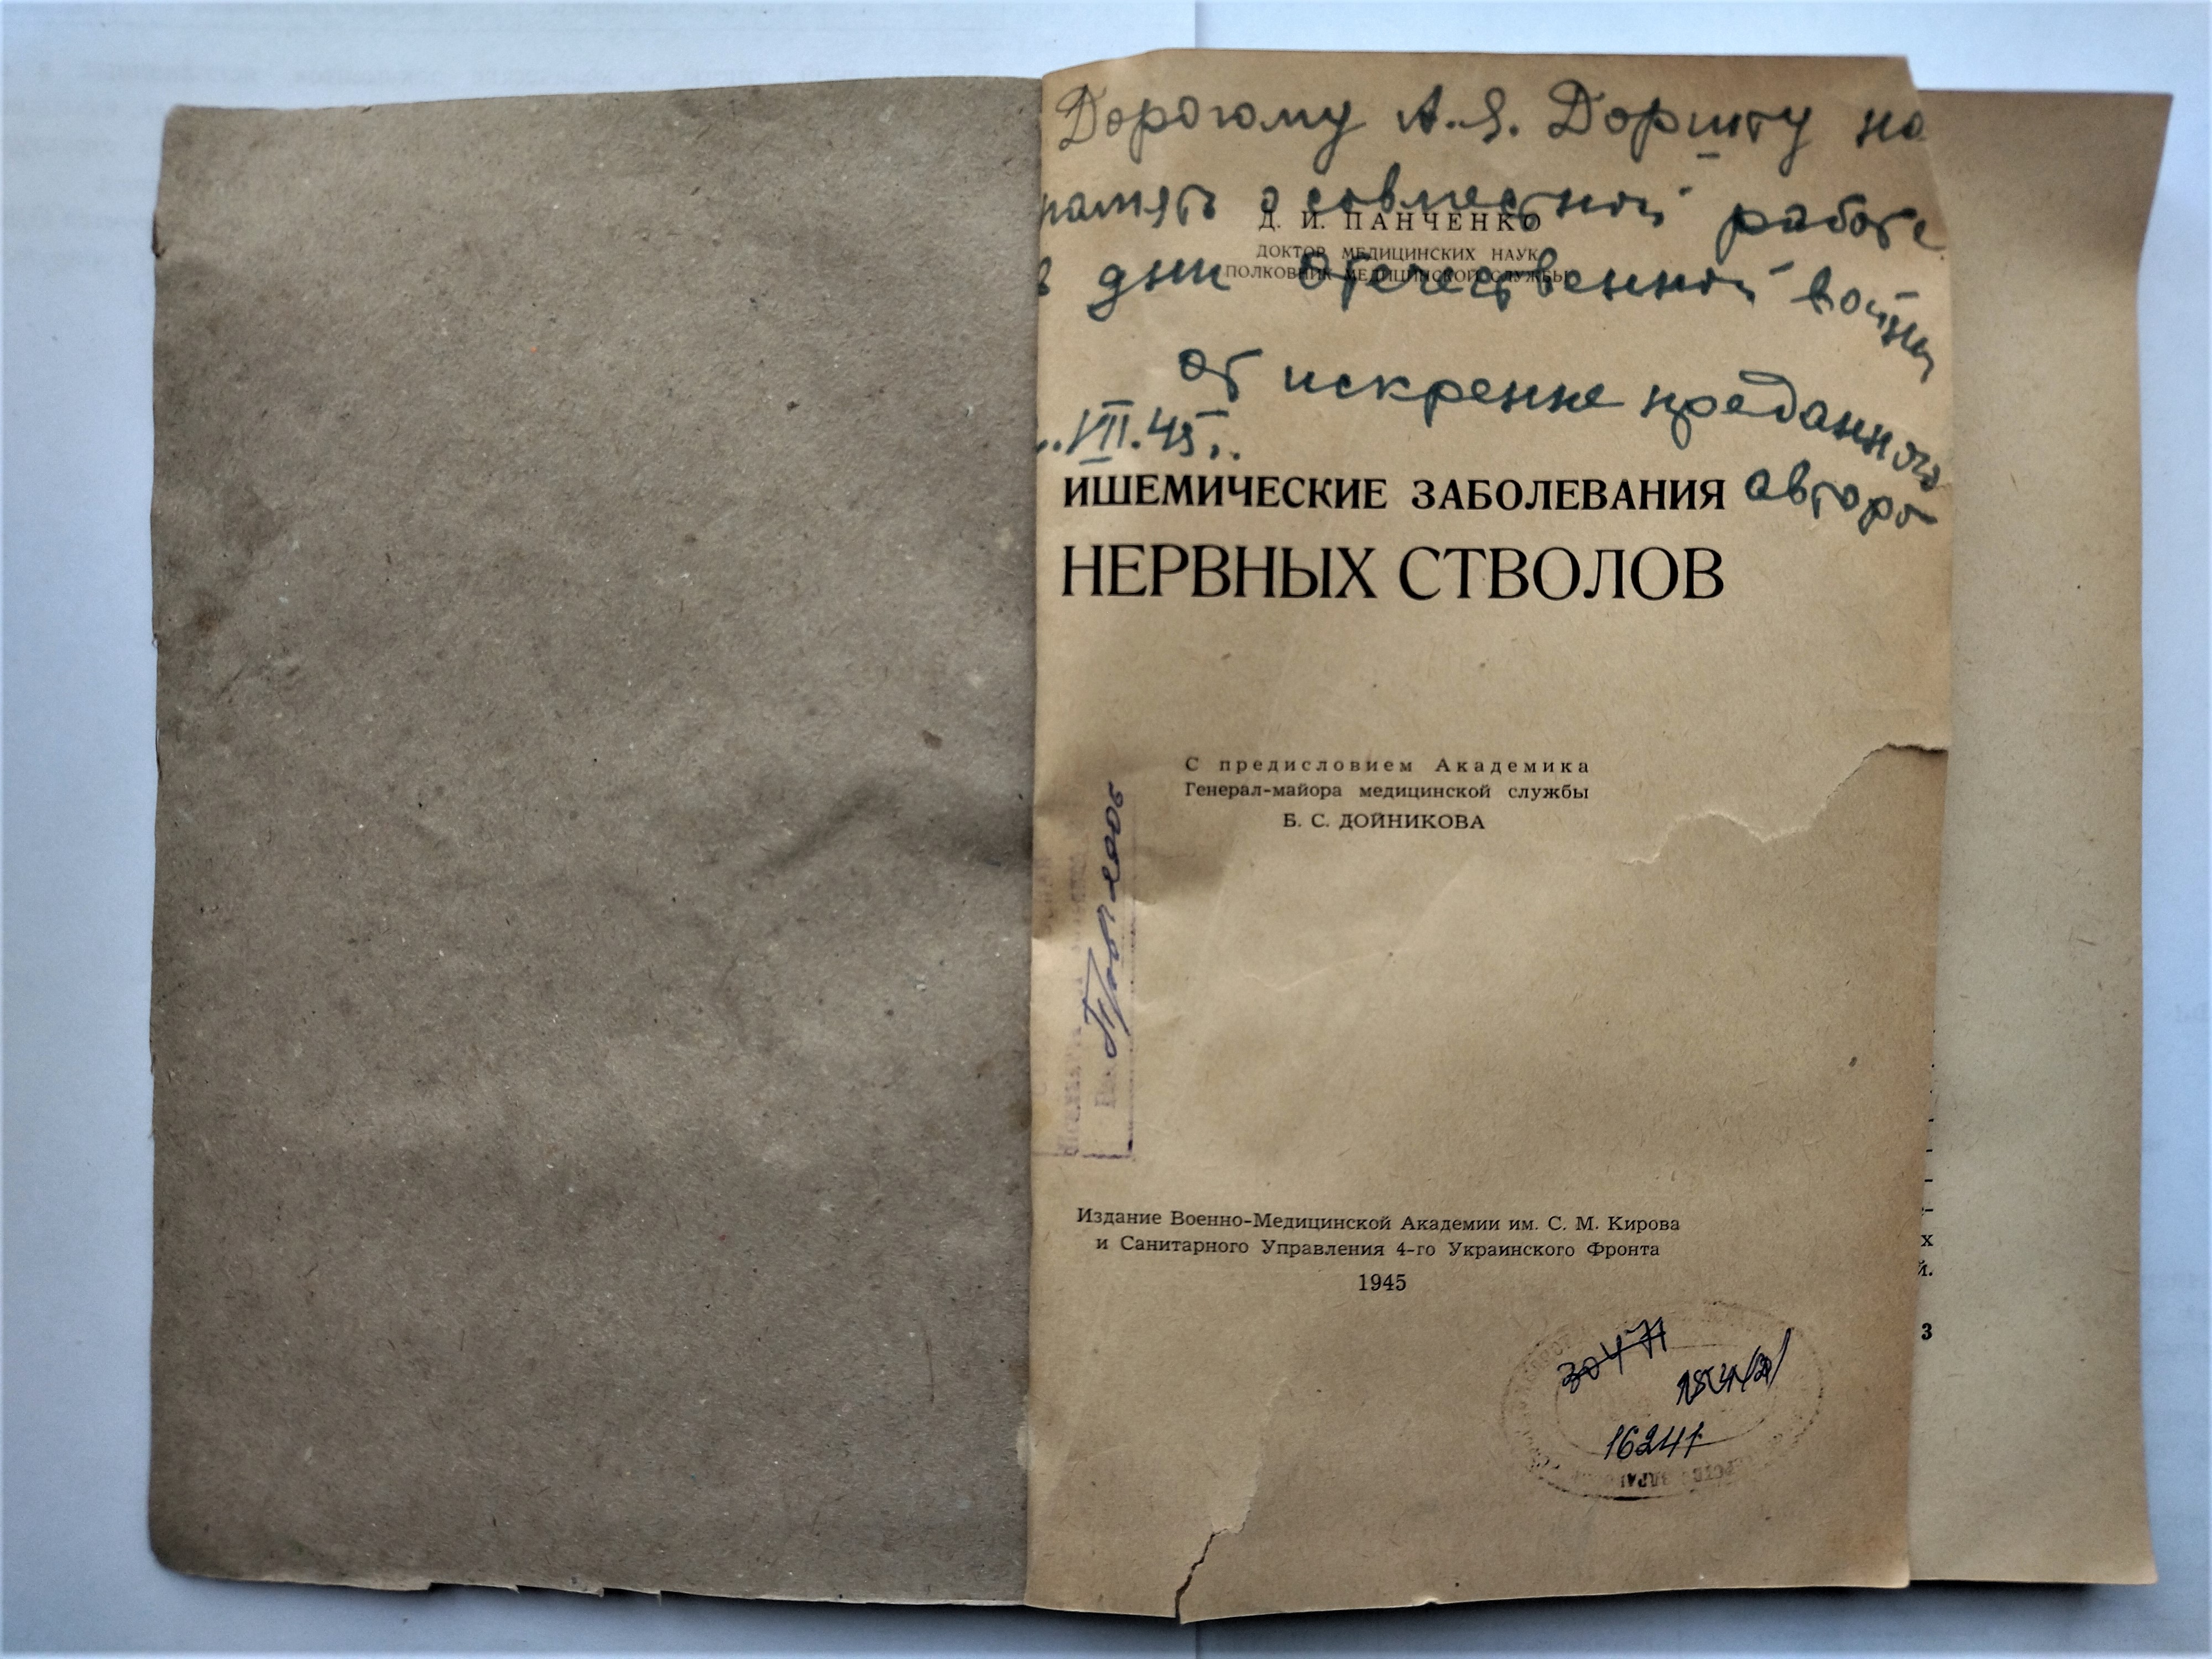 Дорогому А. Я. Доришту на
память о совместной работе
в дни Отечественной войны
от искренне преданного
автора
VII.45 г.
Д. И. ПАНЧЕНКО
ДОКТОР МЕДИЦИНСКИХ НАУК
ПОЛКОВНИК МЕДИЦИНСКОЙ СЛУЖБЫ
ИШЕМИЧЕСКИЕ ЗАБОЛЕВАНИЯ
НЕРВНЫХ СТВОЛОВ
С предисловием Академика
Генерал-майора медицинской службы
Б. С. ДОЙНИКОВА
Издание Военно-Медицинской Академии им. С. М. Кирова
и Санитарного Управления 4-го Украинского Фронта
1945
30471
16241
х
й.
3